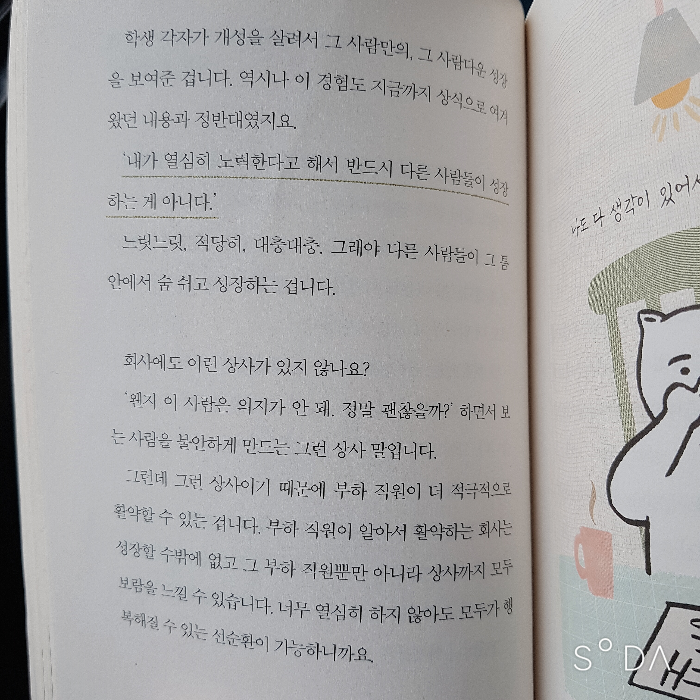 학생 각자가 개성을 살려서 그 사람만의, 그 사람다운 성장
을 보여준 겁니다. 역시나 이 경험도 지금까지 상식으로 여겨
왔던 내용과 정반대였지요.
'내가 열심히 노력한다고 해서 반드시 다른 사람들이 성장
하는 게 아니다.'
느릿느릿, 적당히, 대충대충. 그래야 다른 사람들이 그 틈
안에서 숨 쉬고 성장하는 겁니다.
회사에도 이런 상사가 있지 않나요?
'왠지 이 사람은 의지가 안 돼. 정말 괜찮을까?' 하면서 보
는 사람을 불안하게 만드는 그런 상사 말입니다.
그런데 그런 상사이기 때문에 부하 직원이 더 적극적으로
활약할 수 있는 겁니다. 부하 직원이 알아서 활약하는 회사는
성장할 수밖에 없고 그 부하 직원뿐만 아니라 상사까지 모두
보람을 느낄 수 있습니다. 너무 열심히 하지 않아도 모두가 행
복해질 수 있는 선순환이 가능하니까요.
나도 다 생각이 있어서
SODA